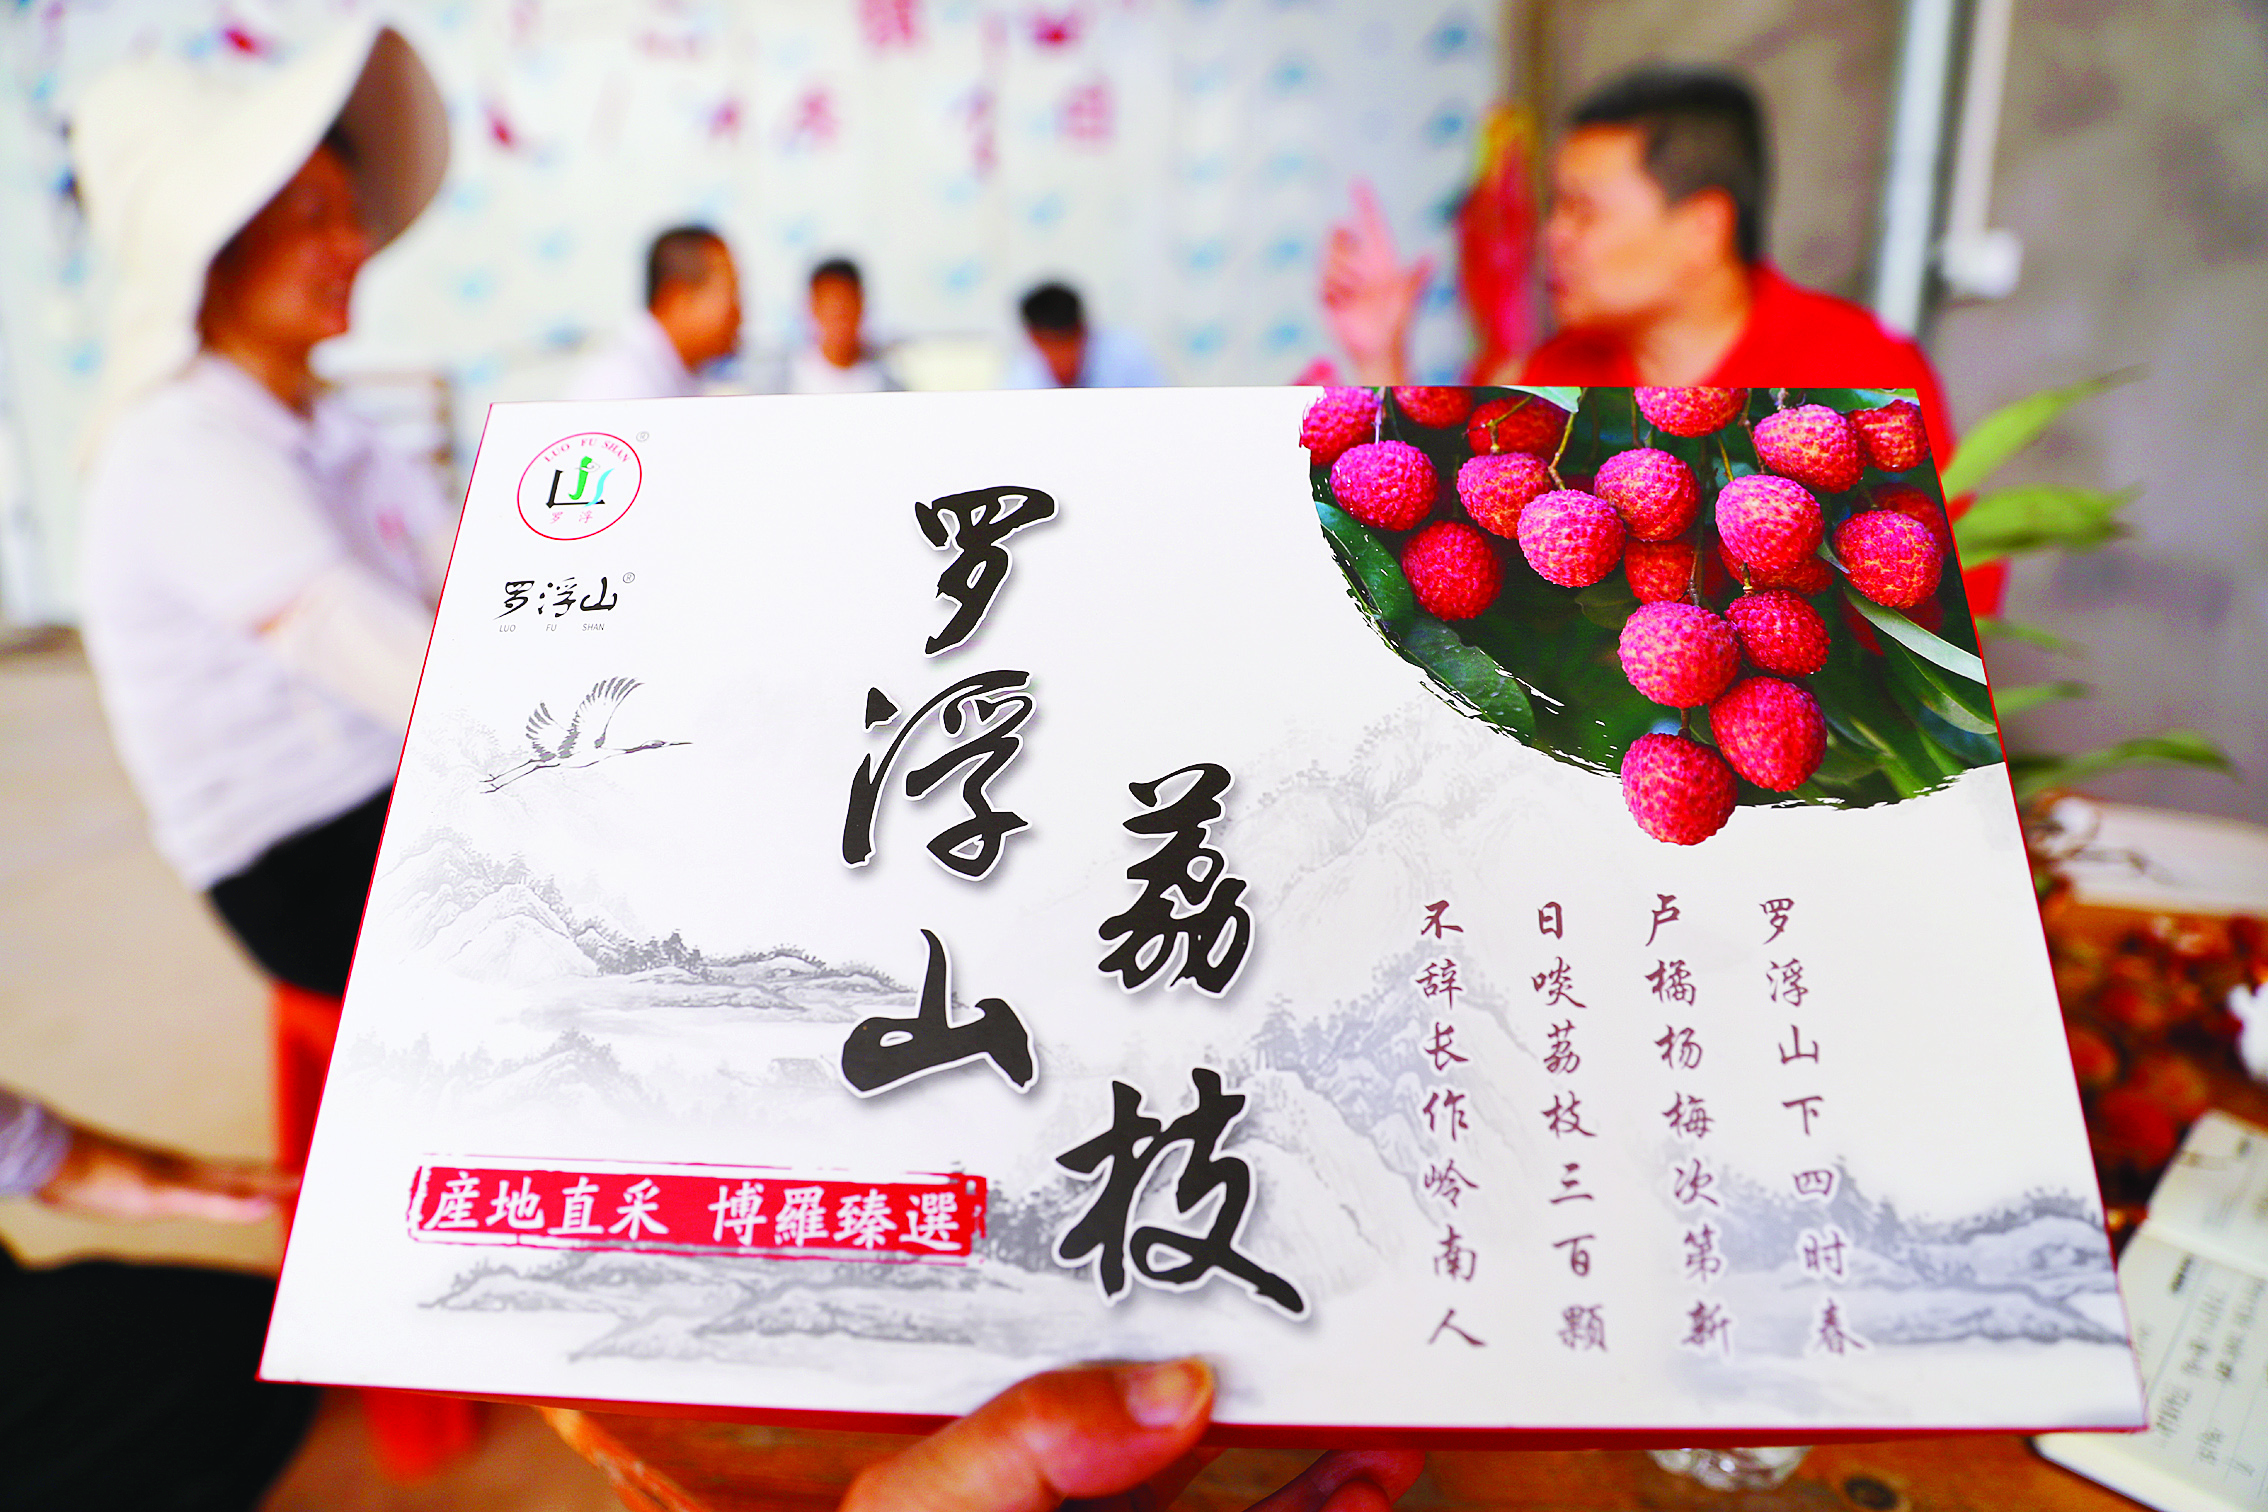 LUO FU SHAN
罗浮
罗浮山®
LUO FU SHAN
罗浮山
荔枝
産地直采 博羅臻選
罗浮山下四时春
卢橘杨梅次第新
日啖荔枝三百颗
不辞长作岭南人